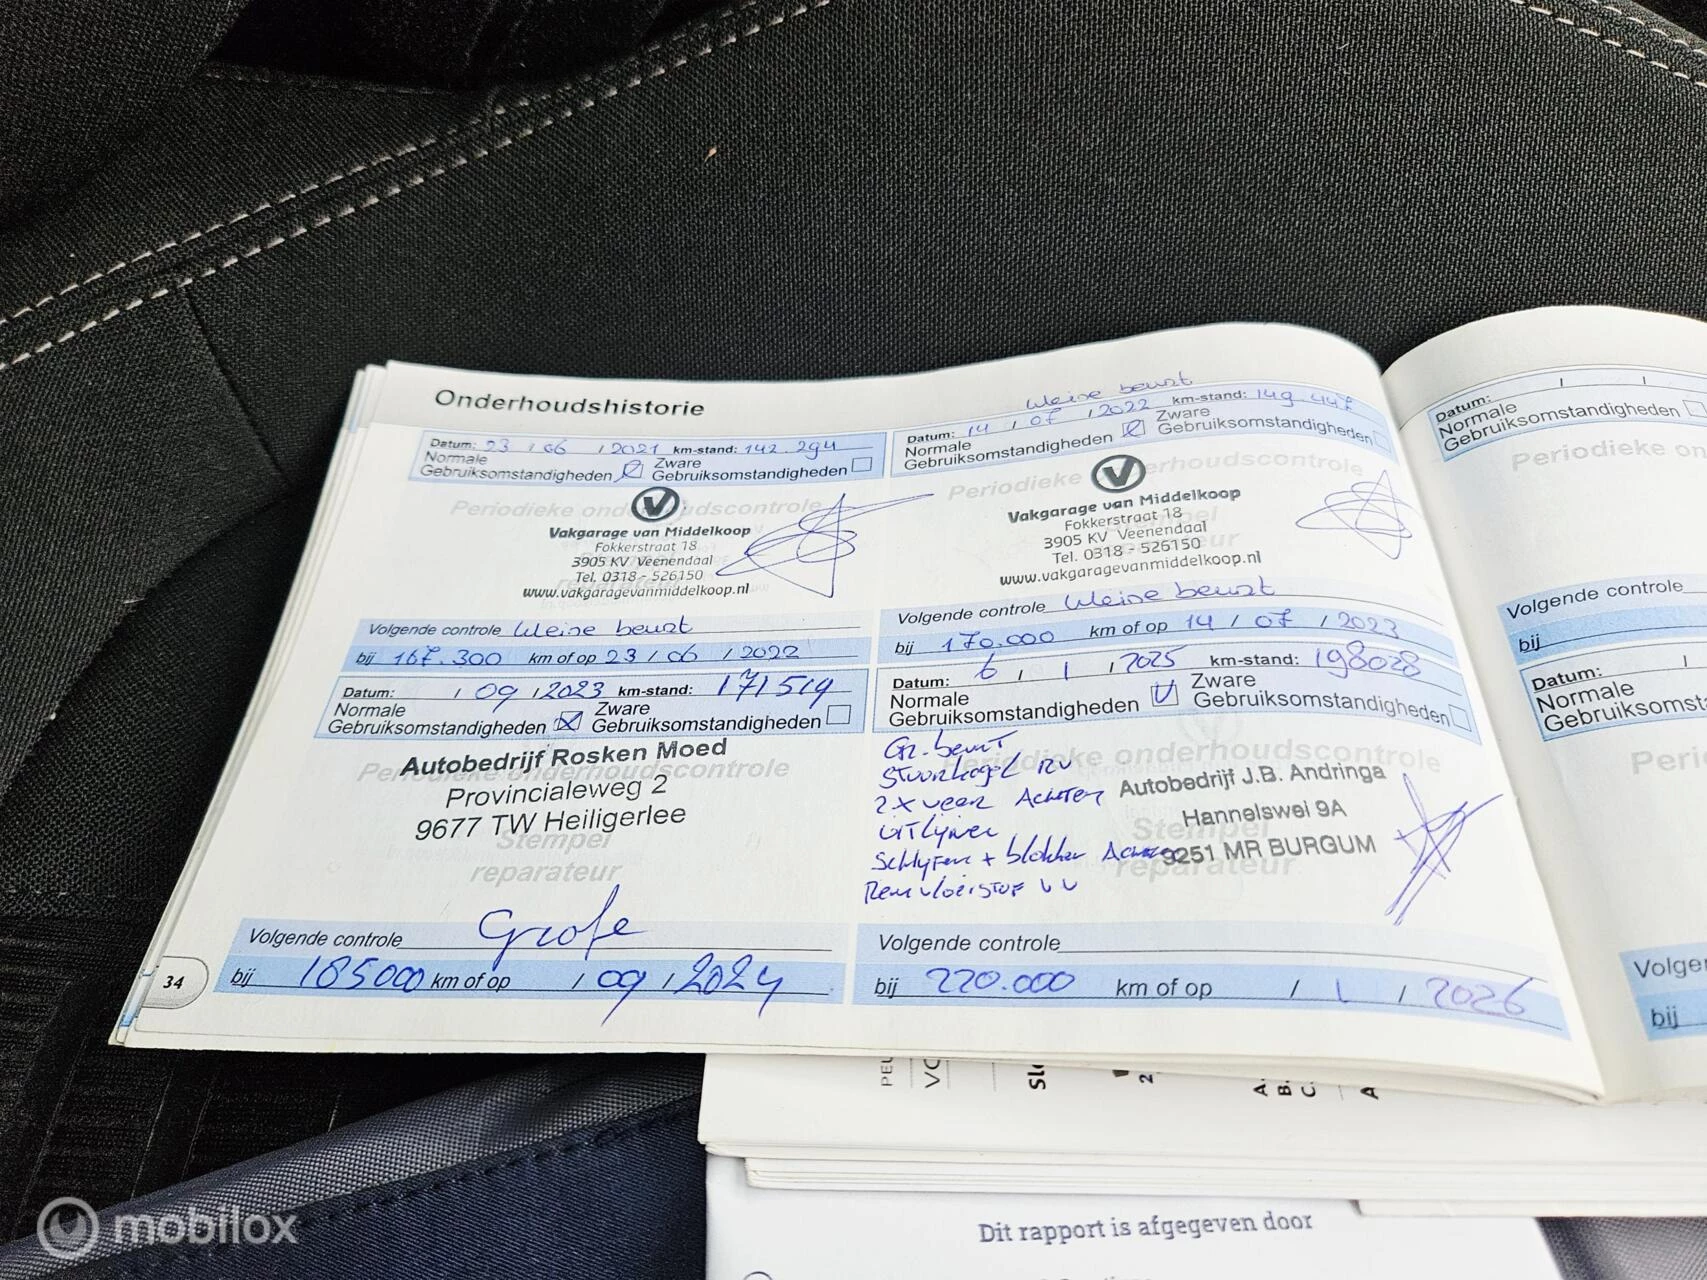 Onderhoudshistorie
Datum: 23 / 06 / 2021 km-stand: 142.294
Normale
Gebruiksomstandigheden
Zware
Gebruiksomstandigheden
Periodieke onderhoudscontrole
Vakgarage van Middelkoop
Fokkerstraat 18
3905 KV Veenendaal
Tel. 0318 - 526150
www.vakgaragevanmiddelkoop.nl
Volgende controle kleine beurt
bij 167.300 km of op 23 / 06 / 2022
Datum: / 09 / 2023 km-stand: 171519
Normale
Gebruiksomstandigheden
Zware
Gebruiksomstandigheden
Periodieke onderhoudscontrole
Autobedrijf Rosken Moed
Provincialeweg 2
9677 TW Heiligerlee
Stempel
reparateur
Volgende controle Grote
bij 185000 km of op / 09 / 2024
34
kleine beurt
Datum: 14 / 07 / 2022 km-stand: 149.447
Normale
Gebruiksomstandigheden
Zware
Gebruiksomstandigheden
Periodieke onderhoudscontrole
Vakgarage van Middelkoop
Fokkerstraat 18
3905 KV Veenendaal
Tel. 0318 - 526150
www.vakgaragevanmiddelkoop.nl
Volgende controle kleine beurt
bij 170.000 km of op 14 / 07 / 2023
Datum: 6 / 1 / 2025 km-stand: 198028
Normale
Gebruiksomstandigheden
Zware
Gebruiksomstandigheden
Periodieke onderhoudscontrole
Gr. beurt
Stuurkogel RV
2x veer Achter
uitlijnen
Schijven + blokken Achter
Remvloeistof VV
Autobedrijf J.B. Andringa
Hannelswei 9A
9251 MR BURGUM
Stempel
reparateur
Volgende controle
bij 220.000 km of op / 1 / 2026
Datum: / /
Normale
Gebruiksomstandigheden
Periodieke on
Volgende controle
bij
Datum: /
Normale
Gebruiksomsta
Perio
Volge
bij
PEU
VO
Sl
2
A.
B.
C.
A
Dit rapport is afgegeven door
mobilox